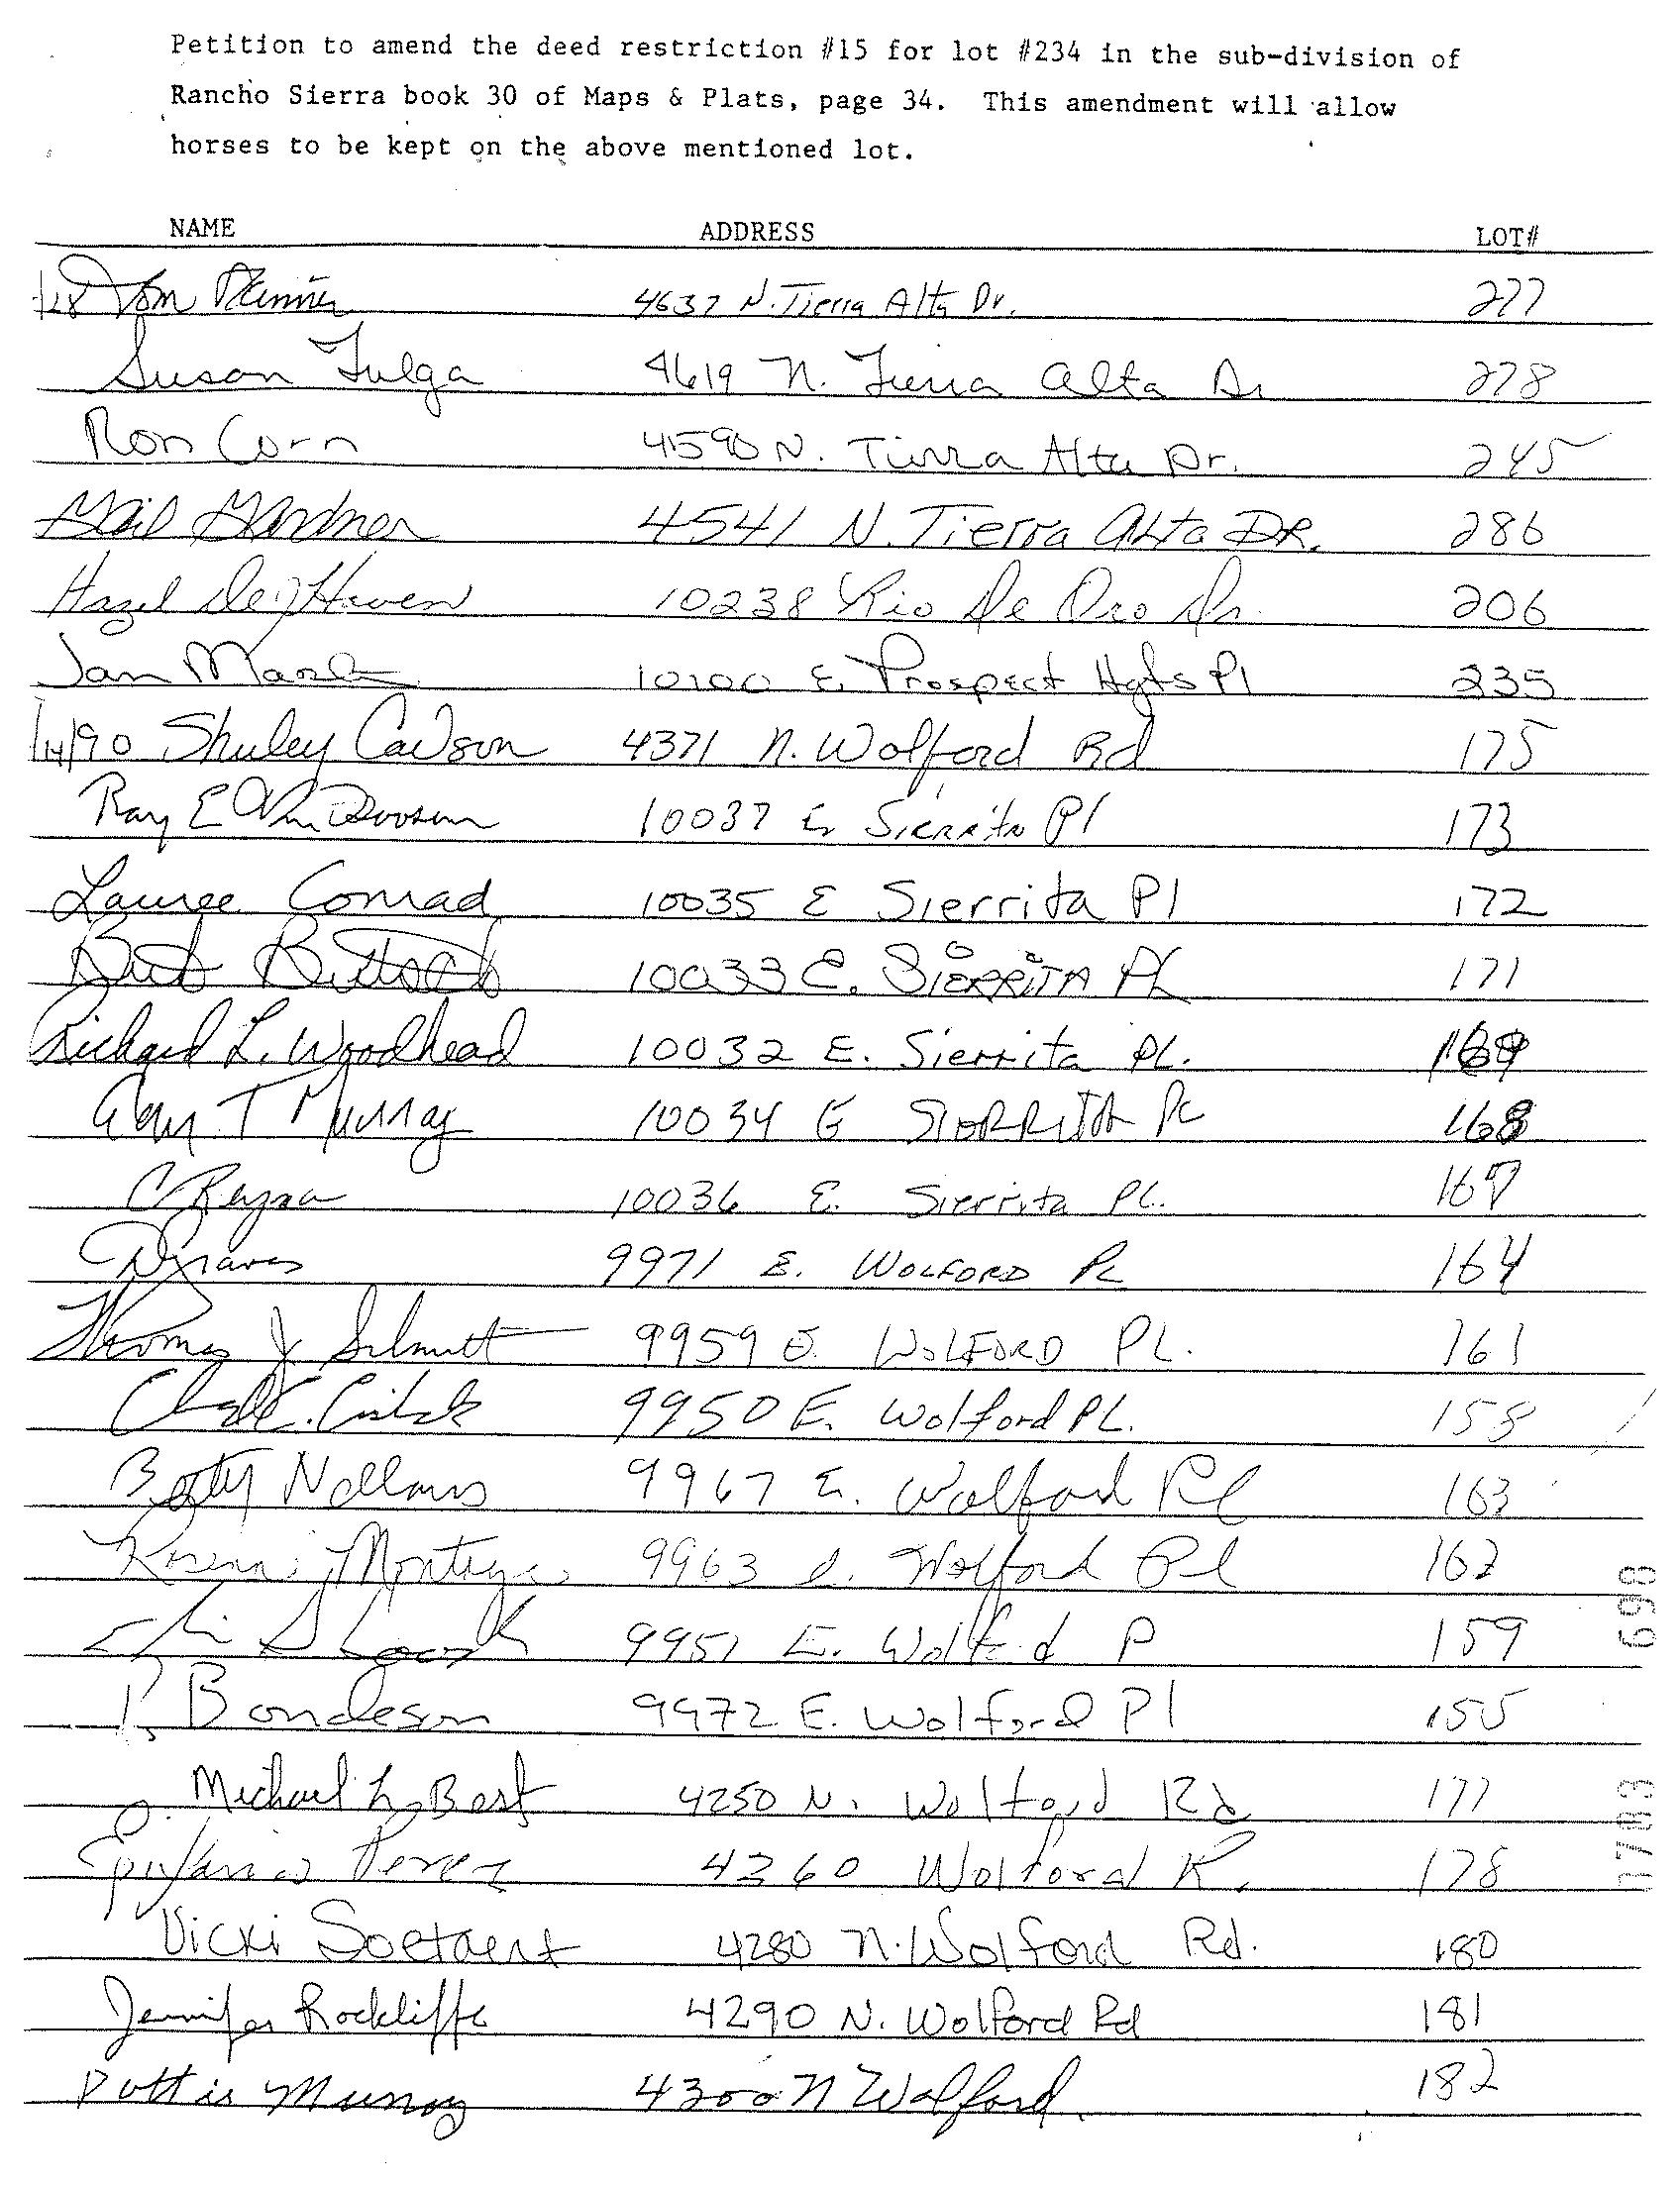 Petition to amend the deed restriction #15 for lot #234 in the sub-division of
Rancho Sierra book 30 of Maps & Plats, page 34. This amendment will allow
horses to be kept on the above mentioned lot.
NAME ADDRESS LOT#
Tom 4637 N. Tierra Alta Dr. 277
Susan Fulga 4619 N. Tierra Alta Dr 278
Ron Corn 4590 N. Tierra Alta Dr. 245
Gail Gardner 4541 N. Tierra Alta DR. 286
Hazel 10238 Rio De Oro Dr. 206
Jan 10100 E. Prospect Hgts Pl 235
90 Shirley Carlson 4371 N. Wolford Rd 175
Ray E 10037 E. Sierrita Pl 173
Lauree Conrad 10035 E Sierrita Pl 172
10033 E. SIERRITA PL 171
Richard L. Woodhead 10032 E. Sierrita PL. 169
Gary T Murray 10034 E SIERRITA PL 168
C Reyna 10036 E. Sierrita PL. 167
Graves 9971 E. WOLFORD PL 164
Thomas J Schmitt 9959 E. WOLFORD PL. 161
9950 E. Wolford PL. 158
Betty 9967 E. Wolford Pl 163
Montoya 9963 E. Wolford Pl 162
9951 E. Wolford P 159
Bondeson 9972 E. Wolford Pl 155
Michael L. Best 4250 N. Wolford Rd 177
Epifanio Perez 4260 Wolford R. 178
Vicki Soetaert 4280 N. Wolford Rd. 180
Jennifer Rockliffe 4290 N. Wolford Rd 181
Pattie Murray 4300 N Wolford. 182
8783 698